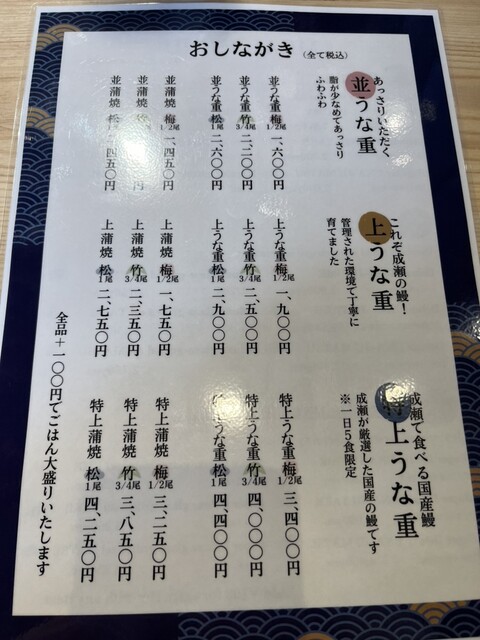 おしながき (全て税込)
あっさりいただく
並うな重
脂が少なめであっさり
ふわふわ
並うな重 梅 1/2尾 一、六〇〇円
並うな重 竹 3/4尾 二、二〇〇円
並うな重 松 1尾 二、六〇〇円
並蒲焼 梅 1/2尾 一、四五〇円
並蒲焼 竹 3/4尾
並蒲焼 松 1尾 二、四五〇円
これぞ成瀬の鰻！
上うな重
管理された環境で丁寧に
育てました
上うな重 梅 1/2尾 一、九〇〇円
上うな重 竹 3/4尾 二、五〇〇円
上うな重 松 1尾 二、九〇〇円
上蒲焼 梅 1/2尾 一、七五〇円
上蒲焼 竹 3/4尾 二、三五〇円
上蒲焼 松 1尾 二、七五〇円
成瀬で食べる国産鰻
特上うな重
成瀬が厳選した国産の鰻です
※一日5食限定
特上うな重 梅 1/2尾 三、四〇〇円
特上うな重 竹 3/4尾 四、〇〇〇円
特上うな重 松 1尾 四、四〇〇円
特上蒲焼 梅 1/2尾 三、二五〇円
特上蒲焼 竹 3/4尾 三、八五〇円
特上蒲焼 松 1尾 四、二五〇円
全品+一〇〇円でごはん大盛りいたします